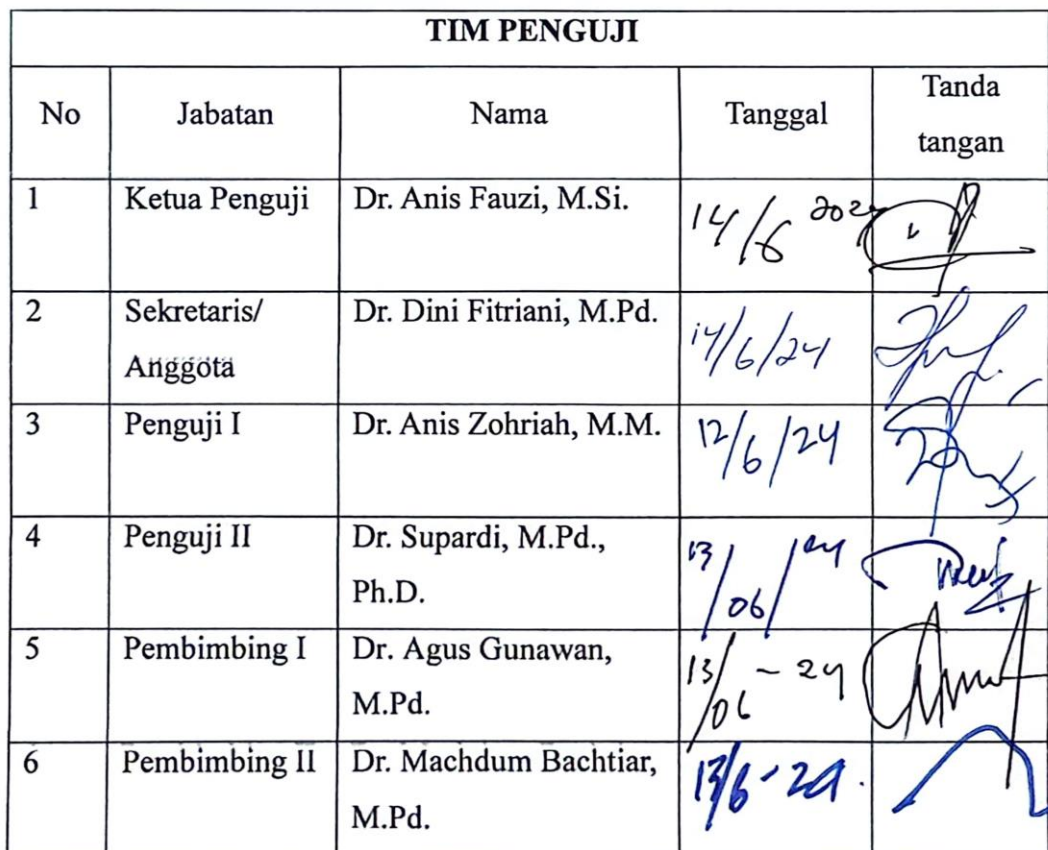 TIM PENGUJI
No Jabatan Nama Tanggal Tanda
tangan
1 Ketua Penguji Dr. Anis Fauzi, M.Si. 14/6 2024
2 Sekretaris/ Dr. Dini Fitriani, M.Pd. 14/6/24
Anggota
3 Penguji I Dr. Anis Zohriah, M.M. 12/6/24
4 Penguji II Dr. Supardi, M.Pd., 13/06/24
Ph.D.
5 Pembimbing I Dr. Agus Gunawan, 13/06-24
M.Pd.
6 Pembimbing II Dr. Machdum Bachtiar, 13/6-24.
M.Pd.